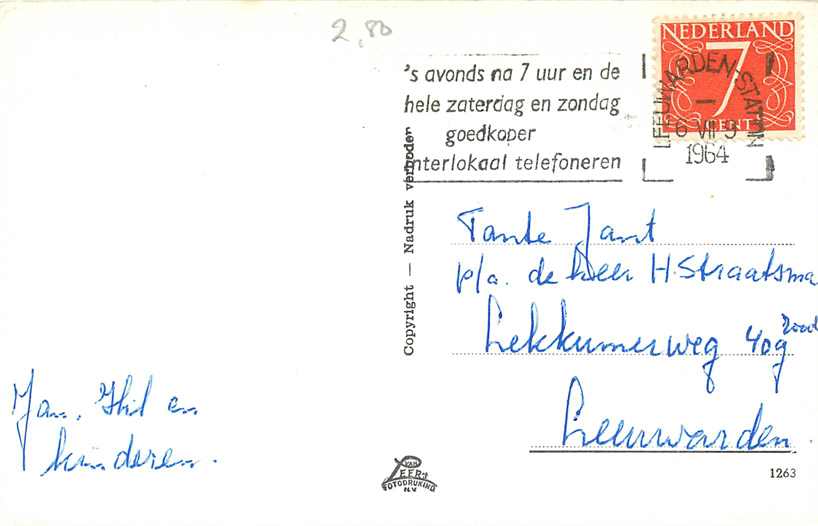 2,80
NEDERLAND
7
CENT
LEEUWARDEN-STATION
6 VII 9
1964
's avonds na 7 uur en de
hele zaterdag en zondag
goedkoper
interlokaal telefoneren
Copyright — Nadruk verboden
Tante Jant
p/a. de heer H. Straatsma
Lekkumerweg 40g
Leeuwarden
Jan, Hil en
kinderen.
VAN
LEER'S
FOTODRUKIND
N.V.
1263